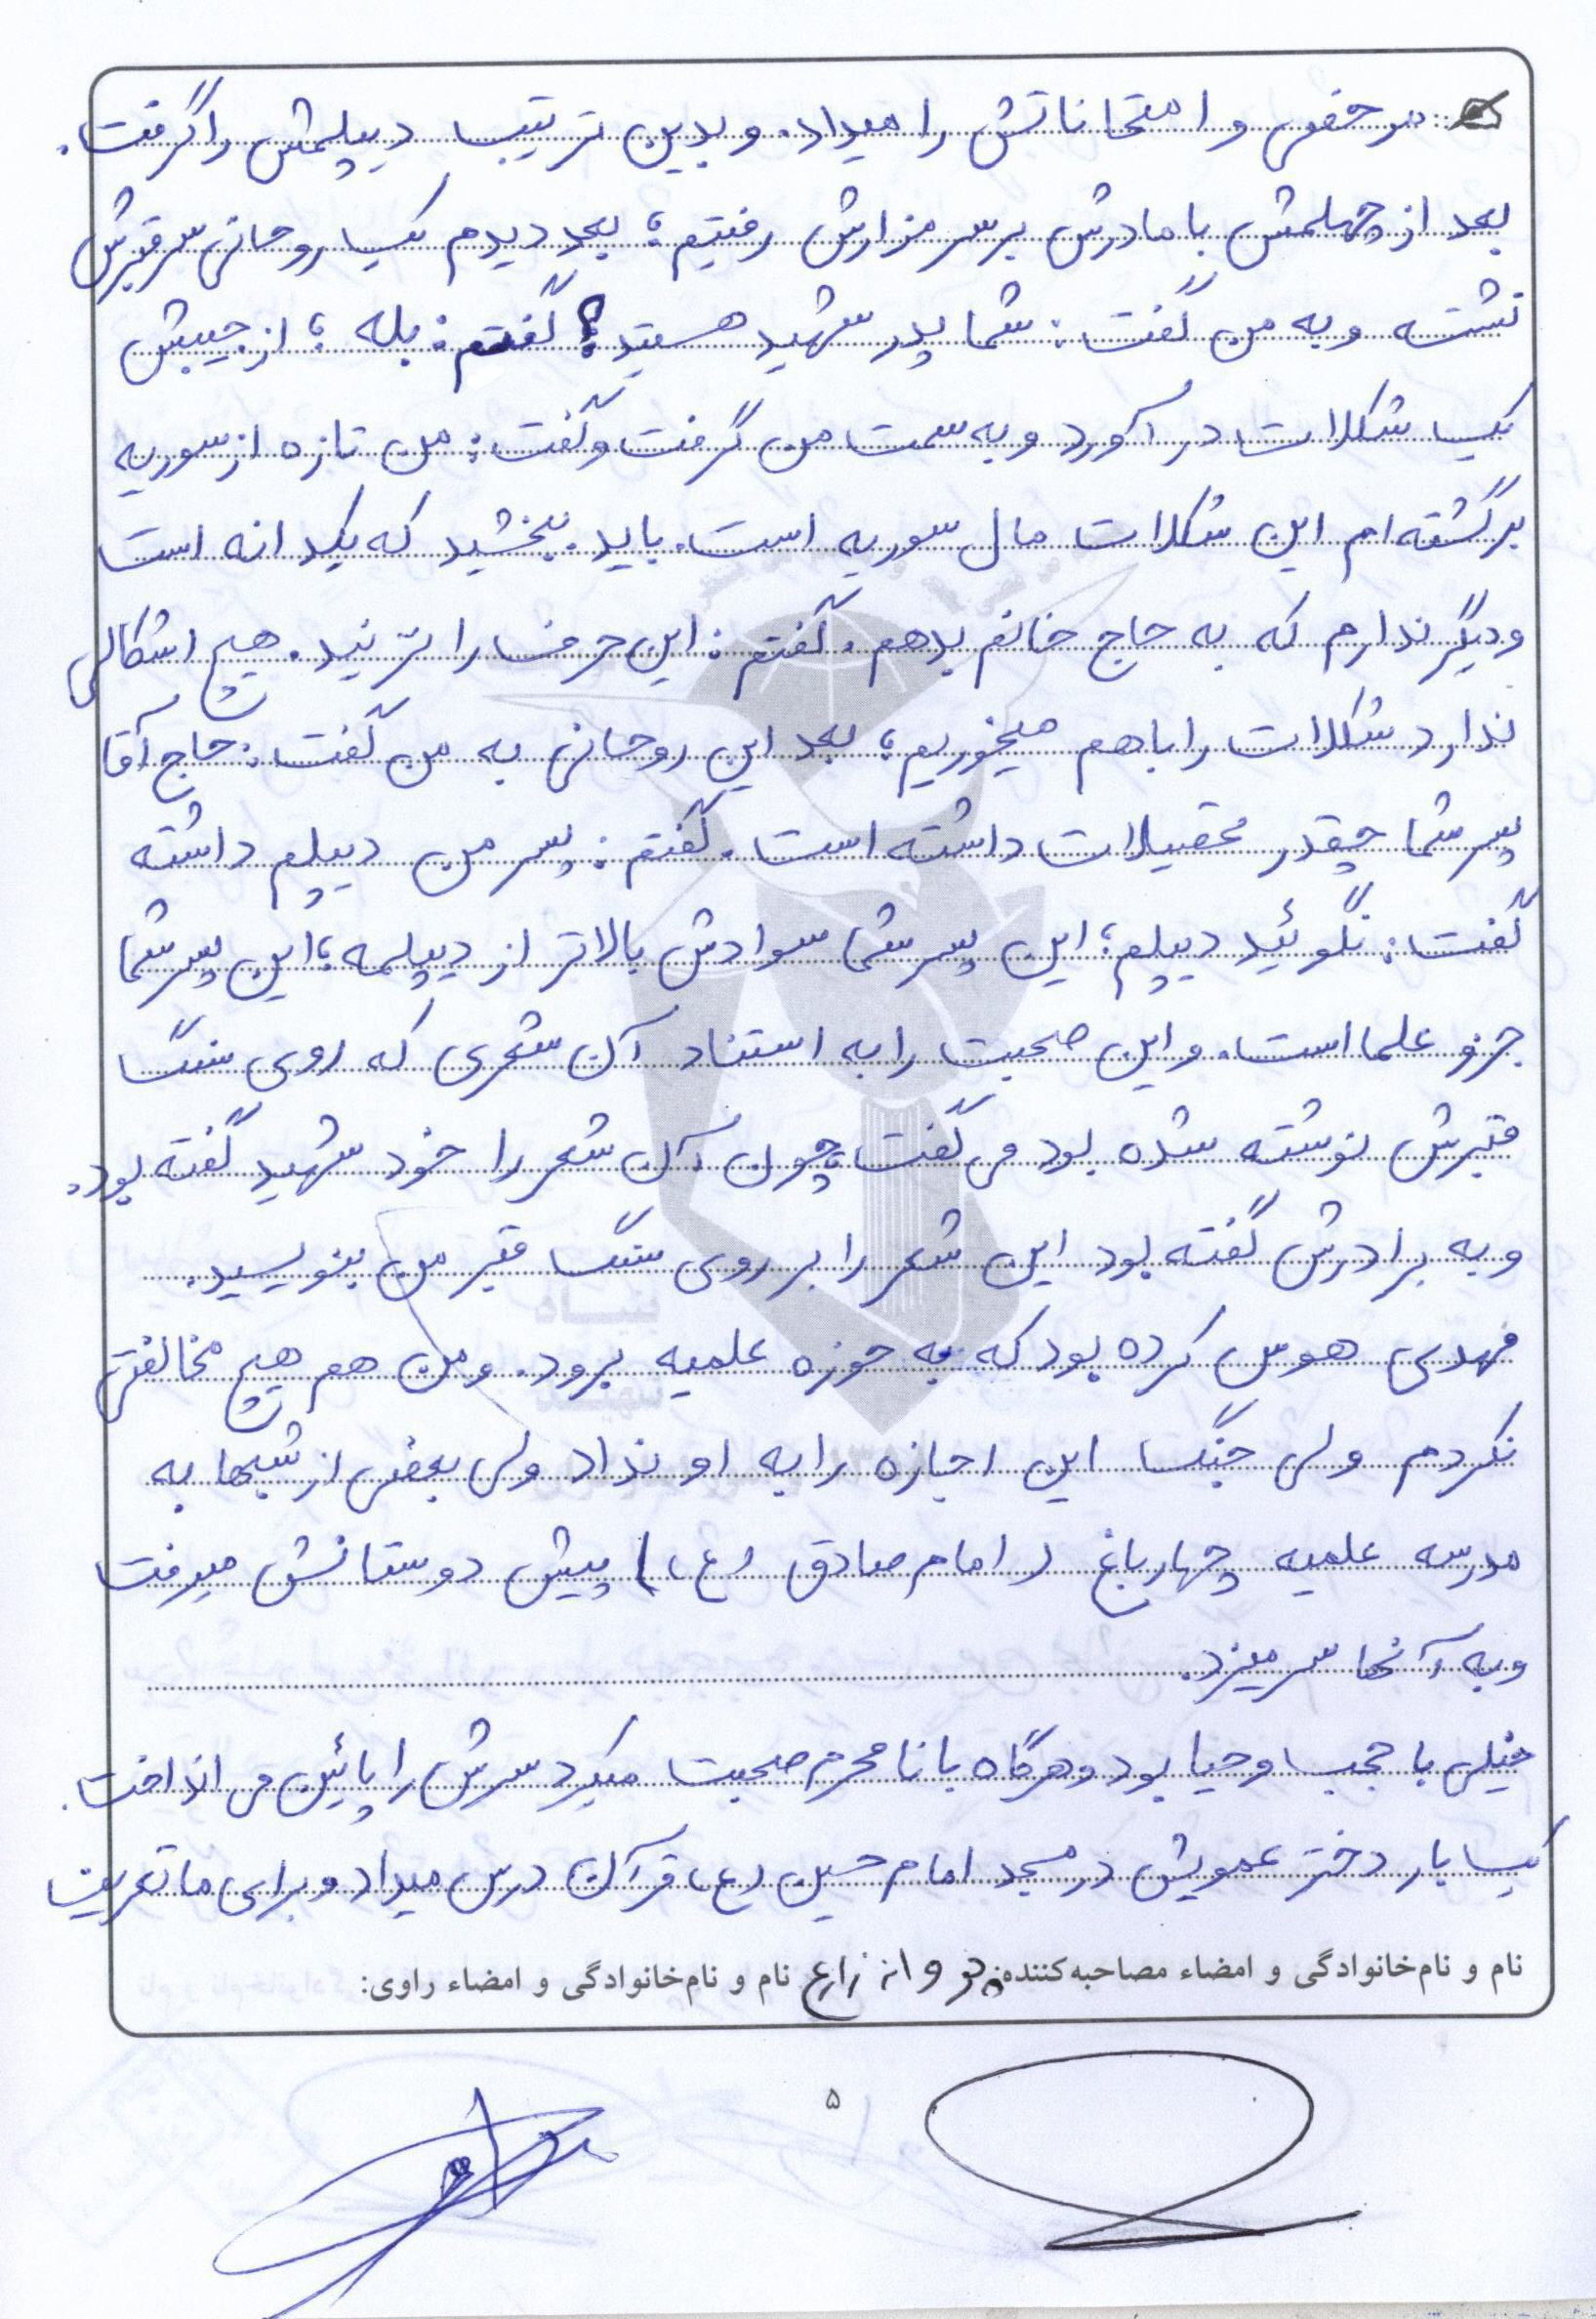 مرخصی و امتحاناتش را میداد. و بدین ترتیب دیپلمش را گرفت.
بعد از چهلمش با مادرش بر سر مزارش رفتیم؛ بعد دیدم یک روحانی سر قبرش
نشسته و به من گفت: شما پدر شهید هستید؟ گفتم: بله؛ از جیبش
یک شکلات در آورد و به سمت من گرفت و گفت: من تازه از سوریه
برگشته ام این شکلات مال سوریه است. باید ببخشید که یکدانه است
و دیگر ندارم که به حاج خانم بدهم. گفتم: این حرف را نزنید. هیچ اشکالی
ندارد شکلات را با هم میخوریم؛ بعد این روحانی به من گفت: حاج آقا
پسر شما چقدر تحصیلات داشته است. گفتم: پسر من دیپلم داشته
گفت: نگوئید دیپلم؛ این پسر شما سوادش بالاتر از دیپلمه؛ این پسر شما
جزو علما است. و این صحبت را به استناد آن شعری که روی سنگ
قبرش نوشته شده بود می گفت؛ چون آن شعر را خود شهید گفته بود.
و به برادرش گفته بود این شعر را بر روی سنگ قبر من بنویسید.
مهدی هوس کرده بود که به حوزه علمیه برود. و من هم هیچ مخالفتی
نکردم ولی جنگ این اجازه را به او نداد ولی بعضی از شبها به
مدرسه علمیه چهارباغ (امام صادق (ع)) پیش دوستانش میرفت
و به آنها سر میزد.
خیلی با حجب و حیا بود و هرگاه با نامحرم صحبت میکرد سرش را پائین می انداخت.
یک بار دختر عمویش در مسجد امام حسین (ع) قرآن درس میداد و برای ما تعریف
نام و نام‌خانوادگی و امضاء مصاحبه‌کننده: زارع نام و نام‌خانوادگی و امضاء راوی:
۵